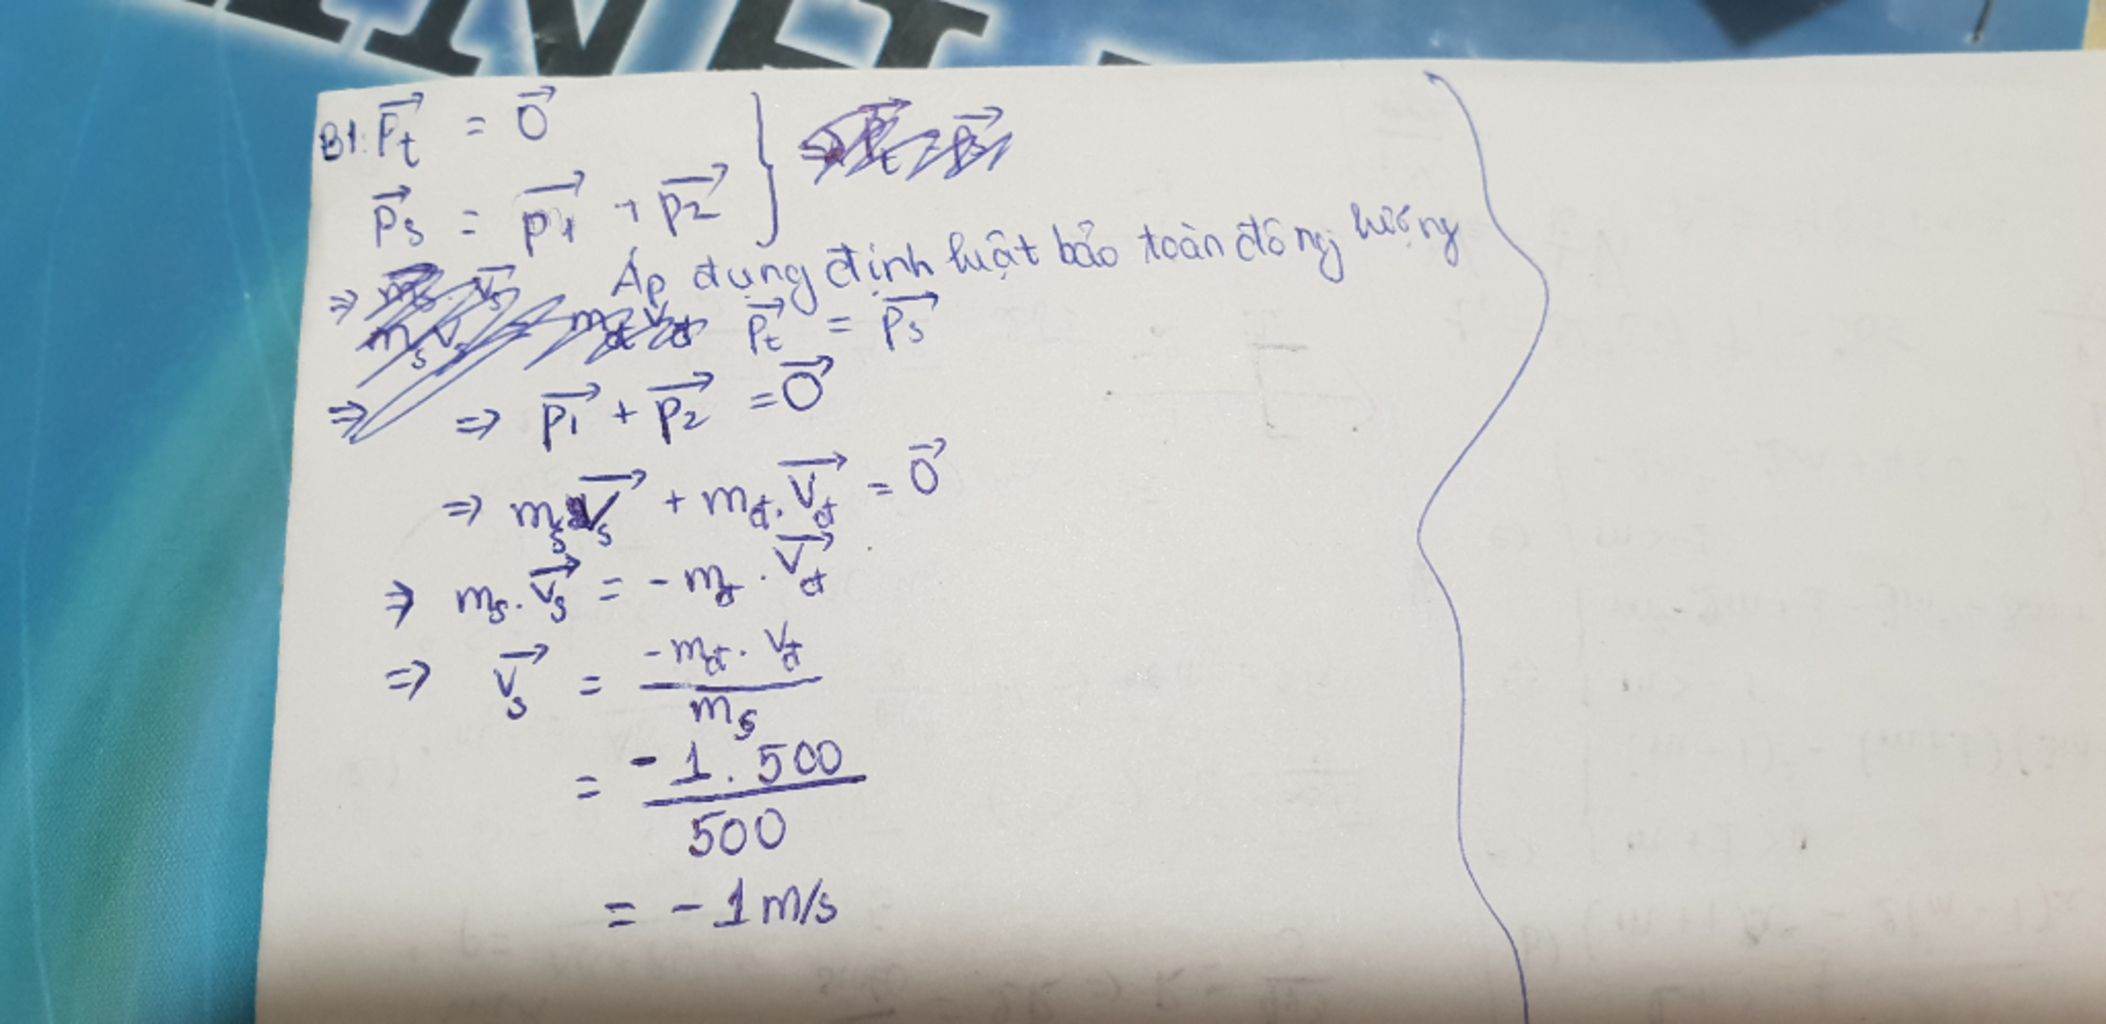 B1: \vec{P_t} = \vec{0}
\vec{P_s} = \vec{p_1} + \vec{p_2} }
Áp dụng định luật bảo toàn động lượng
\vec{P_t} = \vec{P_s}
=> \vec{p_1} + \vec{p_2} = \vec{0}
=> m_s \vec{V_s} + m_đ . \vec{V_đ} = \vec{0}
=> m_s . \vec{V_s} = - m_đ . \vec{V_đ}
=> \vec{V_s} = \frac{-m_đ . V_đ}{m_s}
= \frac{-1 . 500}{500}
= - 1 m/s